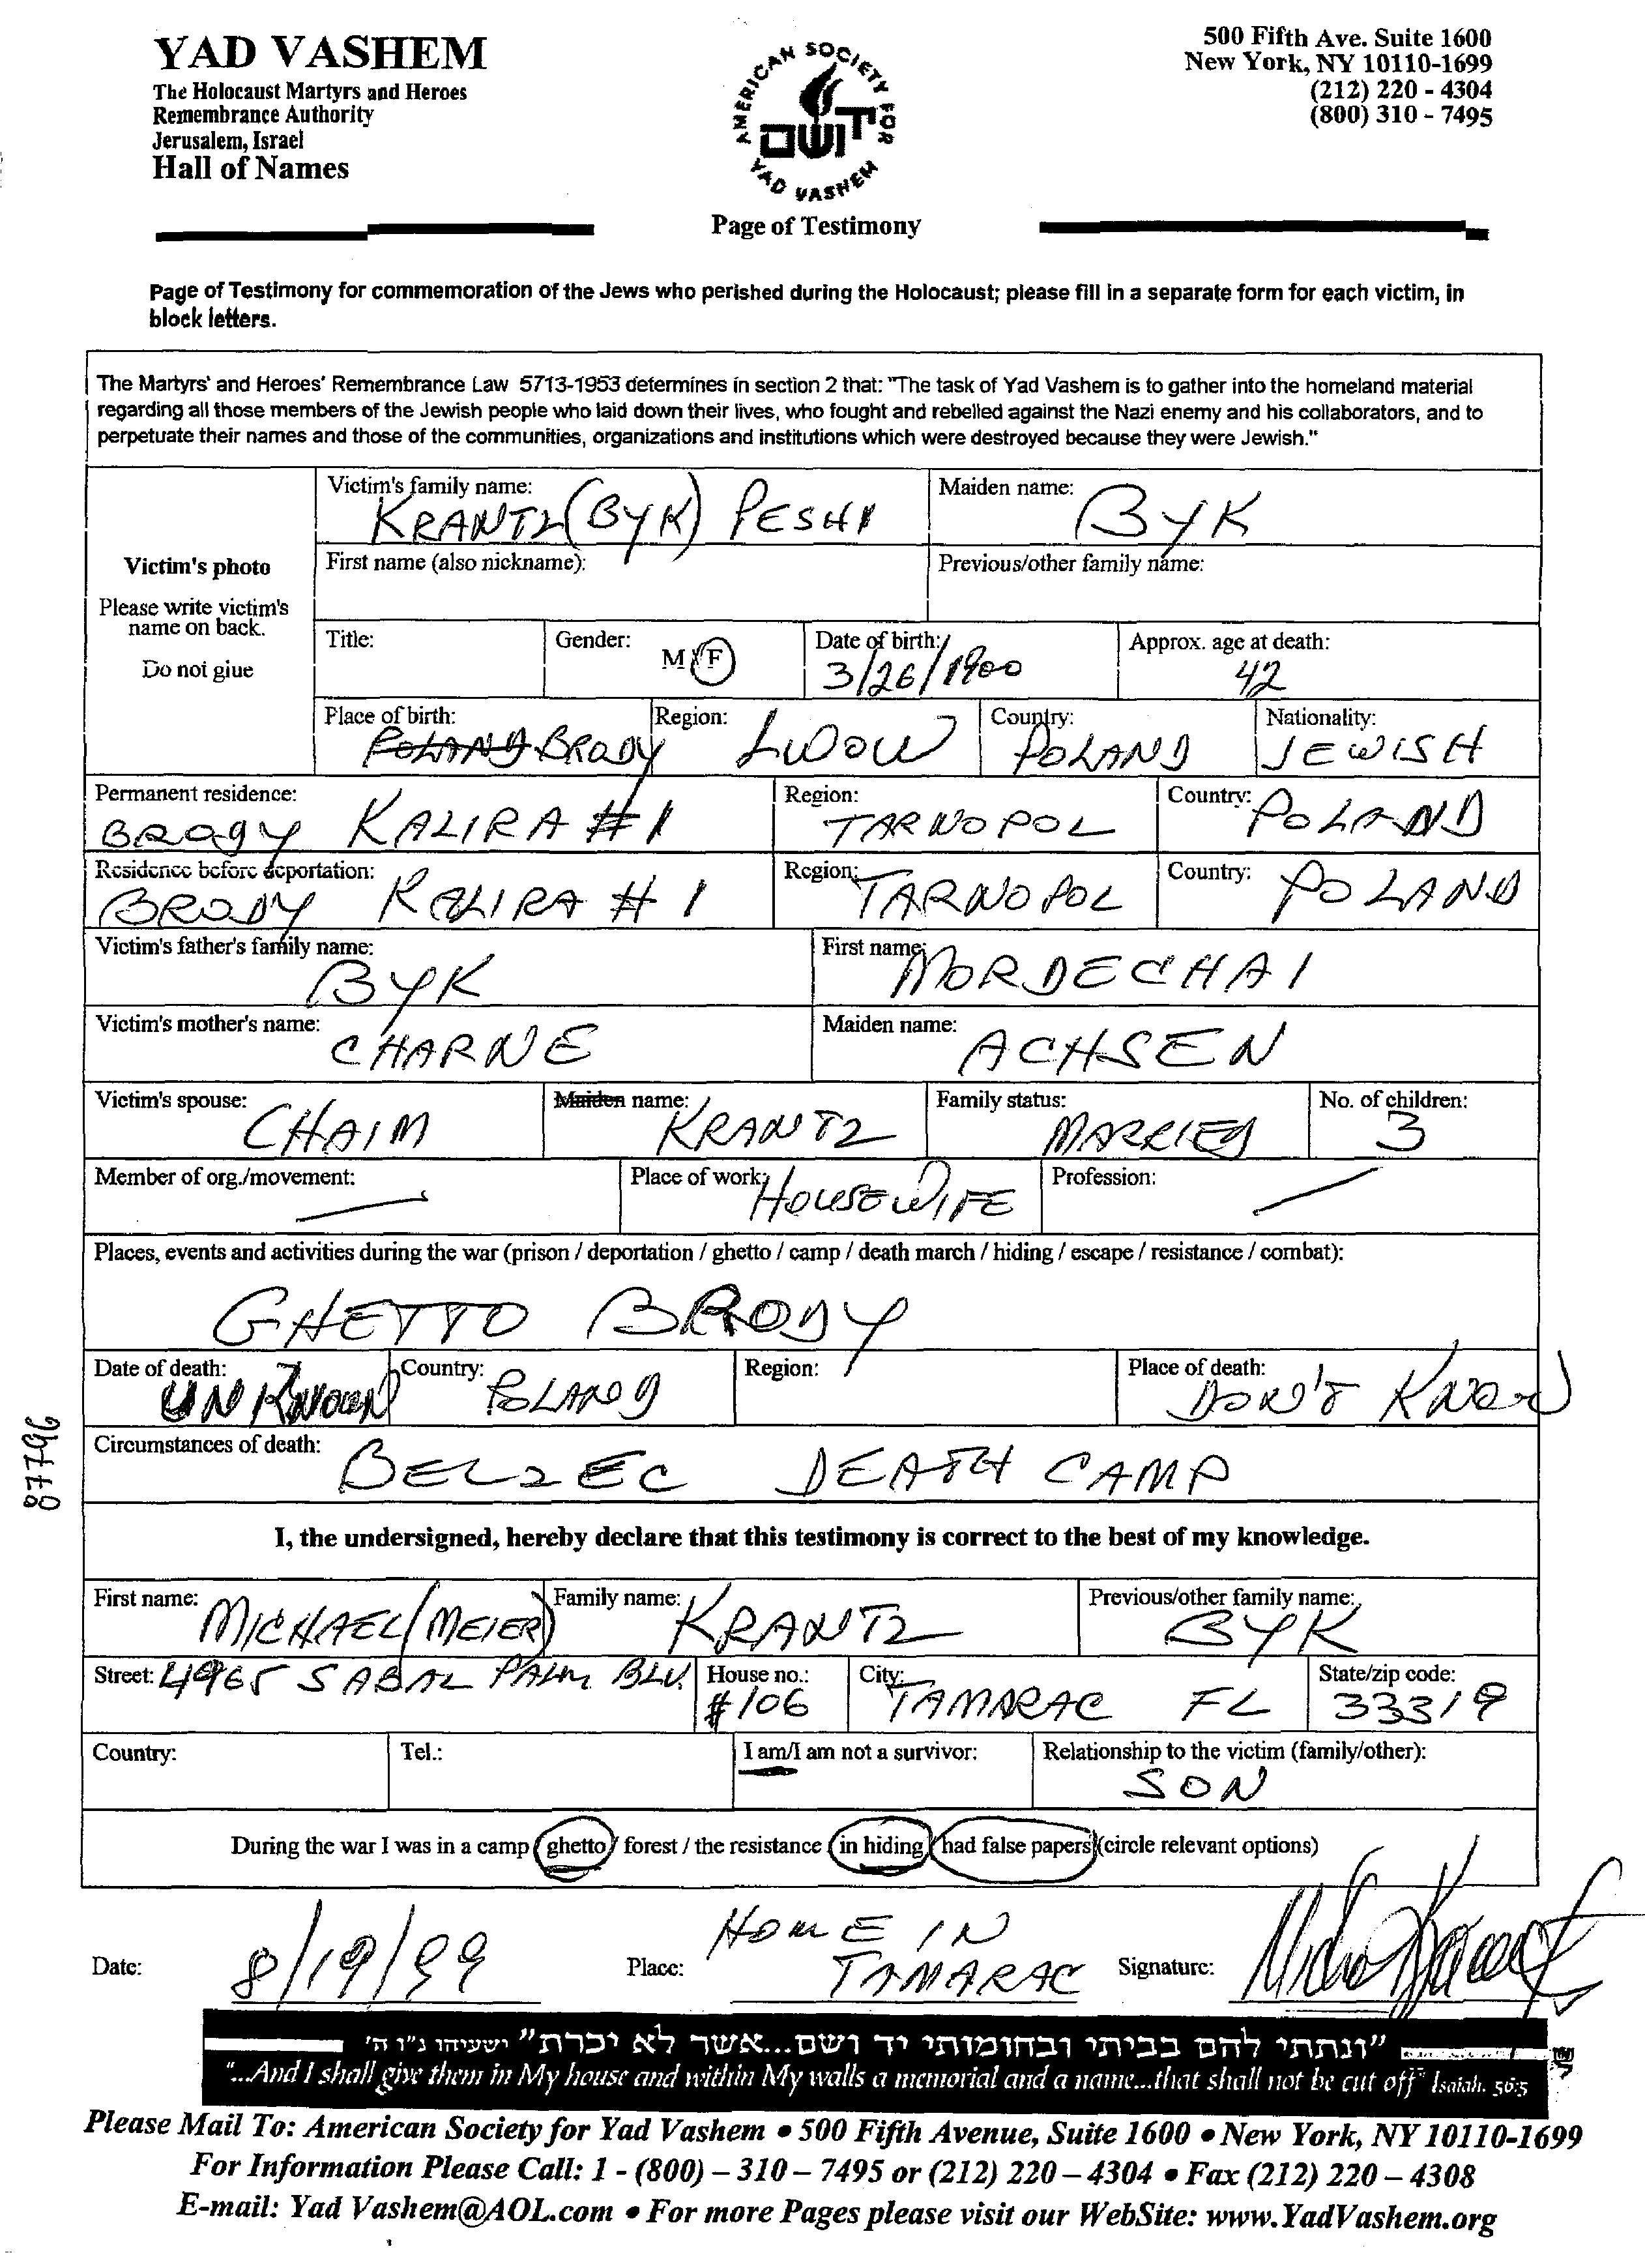 YAD VASHEM
The Holocaust Martyrs and Heroes
Remembrance Authority
Jerusalem, Israel
Hall of Names
AMERICAN SOCIETY FOR
יד ושם
YAD VASHEM
Page of Testimony
500 Fifth Ave. Suite 1600
New York, NY 10110-1699
(212) 220 - 4304
(800) 310 - 7495
Page of Testimony for commemoration of the Jews who perished during the Holocaust; please fill in a separate form for each victim, in
block letters.
The Martyrs' and Heroes' Remembrance Law 5713-1953 determines in section 2 that: "The task of Yad Vashem is to gather into the homeland material
regarding all those members of the Jewish people who laid down their lives, who fought and rebelled against the Nazi enemy and his collaborators, and to
perpetuate their names and those of the communities, organizations and institutions which were destroyed because they were Jewish."
Victim's photo
Please write victim's
name on back.
Do not glue
Victim's family name: KRANTZ (BYK) PESHI
Maiden name: BYK
First name (also nickname):
Previous/other family name:
Title:
Gender: M/F
Date of birth: 3/26/1900
Approx. age at death: 42
Place of birth: POLAND BRODY
Region: LWOW
Country: POLAND
Nationality: JEWISH
Permanent residence: BRODY KALIRA #1
Region: TARNOPOL
Country: POLAND
Residence before deportation: BRODY KALIRA #1
Region: TARNOPOL
Country: POLAND
Victim's father's family name: BYK
First name: MORDECHAI
Victim's mother's name: CHARNE
Maiden name: ACHSEN
Victim's spouse: CHAIM
Maiden name: KRANTZ
Family status: MARRIED
No. of children: 3
Member of org./movement: —
Place of work: HOUSEWIFE
Profession: —
Places, events and activities during the war (prison / deportation / ghetto / camp / death march / hiding / escape / resistance / combat):
GHETTO BRODY
Date of death: UNKNOWN
Country: POLAND
Region:
Place of death: DON'T KNOW
Circumstances of death: BELZEC DEATH CAMP
87796
I, the undersigned, hereby declare that this testimony is correct to the best of my knowledge.
First name: MICHAEL (MEIER)
Family name: KRANTZ
Previous/other family name: BYK
Street: 4965 SABAL PALM BLV.
House no.: #106
City: TAMARAC FL
State/zip code: 33319
Country:
Tel.:
I am/I am not a survivor:
Relationship to the victim (family/other): SON
During the war I was in a camp / ghetto / forest / the resistance / in hiding / had false papers (circle relevant options)
Date: 8/19/99
Place: HOME IN
TAMARAC
Signature:
"ונתתי להם בביתי ובחומותי יד ושם...אשר לא יכרת" ישעיהו נ"ו ה'
"...And I shall give them in My house and within My walls a memorial and a name...that shall not be cut off" Isaiah. 56:5
Please Mail To: American Society for Yad Vashem • 500 Fifth Avenue, Suite 1600 • New York, NY 10110-1699
For Information Please Call: 1 - (800) – 310 – 7495 or (212) 220 – 4304 • Fax (212) 220 – 4308
E-mail: Yad Vashem@AOL.com • For more Pages please visit our WebSite: www.YadVashem.org